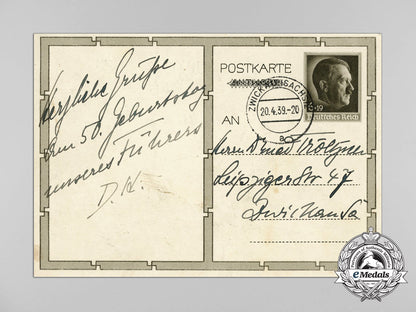 Herzliche Grüße
zum 50. Geburtstag
unseres Führers
D.K.
POSTKARTE
AN
ZWICKAU (SACHS)
20.4.39.-20
a
6+19
Deutsches Reich
Herrn
Leipziger Str 47
Zwickau Sa
eMedals